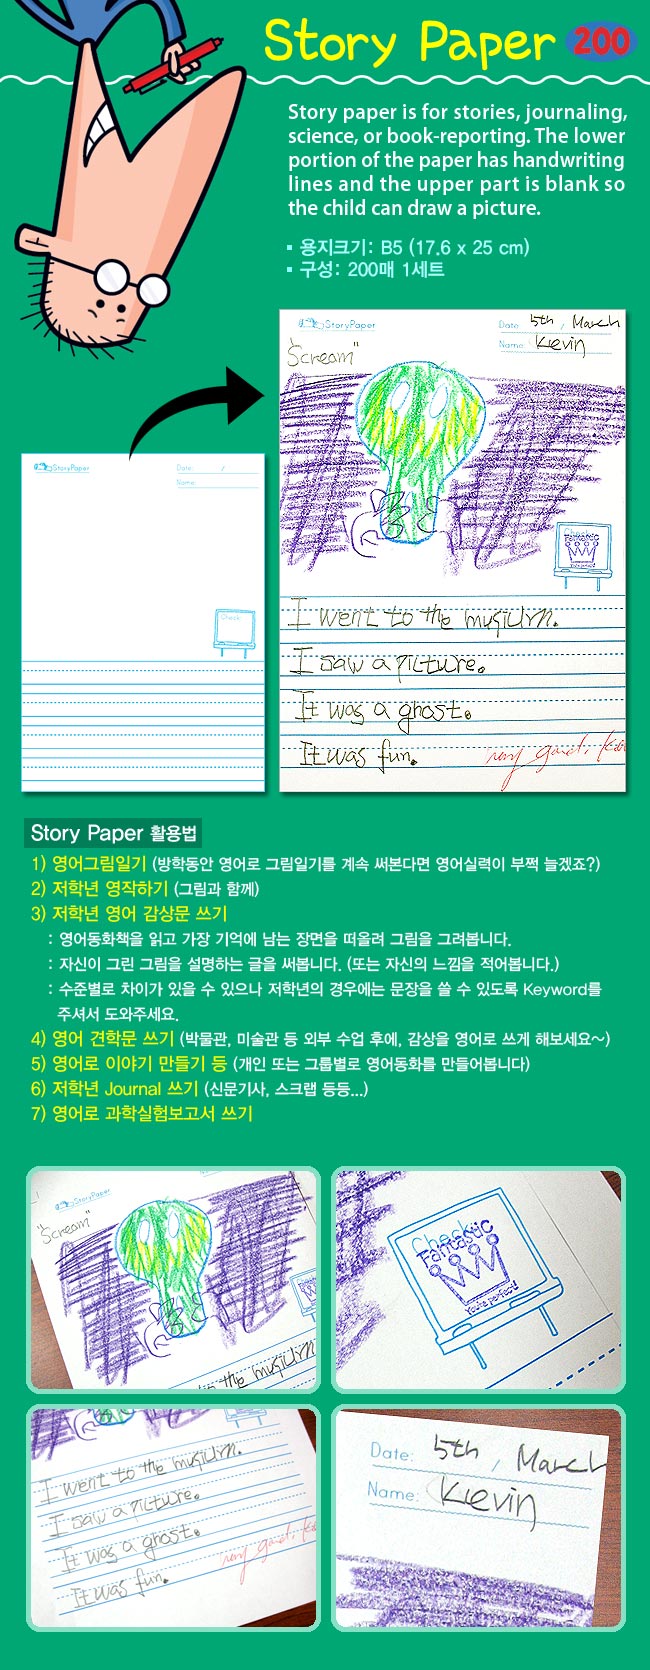 Story Paper 200
Story paper is for stories, journaling,
science, or book-reporting. The lower
portion of the paper has handwriting
lines and the upper part is blank so
the child can draw a picture.
▪ 용지크기: B5 (17.6 x 25 cm)
▪ 구성: 200매 1세트
StoryPaper
Date: 5th, March
Name: Kevin
"Scream"
StoryPaper
Date: /
Name:
Check
Fantastic
I went to the musiurn.
I saw a picture.
It was a ghost.
It was fun.
Story Paper 활용법
1) 영어그림일기 (방학동안 영어로 그림일기를 계속 써본다면 영어실력이 부쩍 늘겠죠?)
2) 저학년 영작하기 (그림과 함께)
3) 저학년 영어 감상문 쓰기
: 영어동화책을 읽고 가장 기억에 남는 장면을 떠올려 그림을 그려봅니다.
: 자신이 그린 그림을 설명하는 글을 써봅니다. (또는 자신의 느낌을 적어봅니다.)
: 수준별로 차이가 있을 수 있으나 저학년의 경우에는 문장을 쓸 수 있도록 Keyword를
주셔서 도와주세요.
4) 영어 견학문 쓰기 (박물관, 미술관 등 외부 수업 후에, 감상을 영어로 쓰게 해보세요~)
5) 영어로 이야기 만들기 등 (개인 또는 그룹별로 영어동화를 만들어봅니다)
6) 저학년 Journal 쓰기 (신문기사, 스크랩 등등...)
7) 영어로 과학실험보고서 쓰기
StoryPaper
"Scream"
Check
Fantastic
You're perfect!
I went to the musiurn.
I saw a picture.
It was a ghost.
It was fun.
Date: 5th, March
Name: Kevin